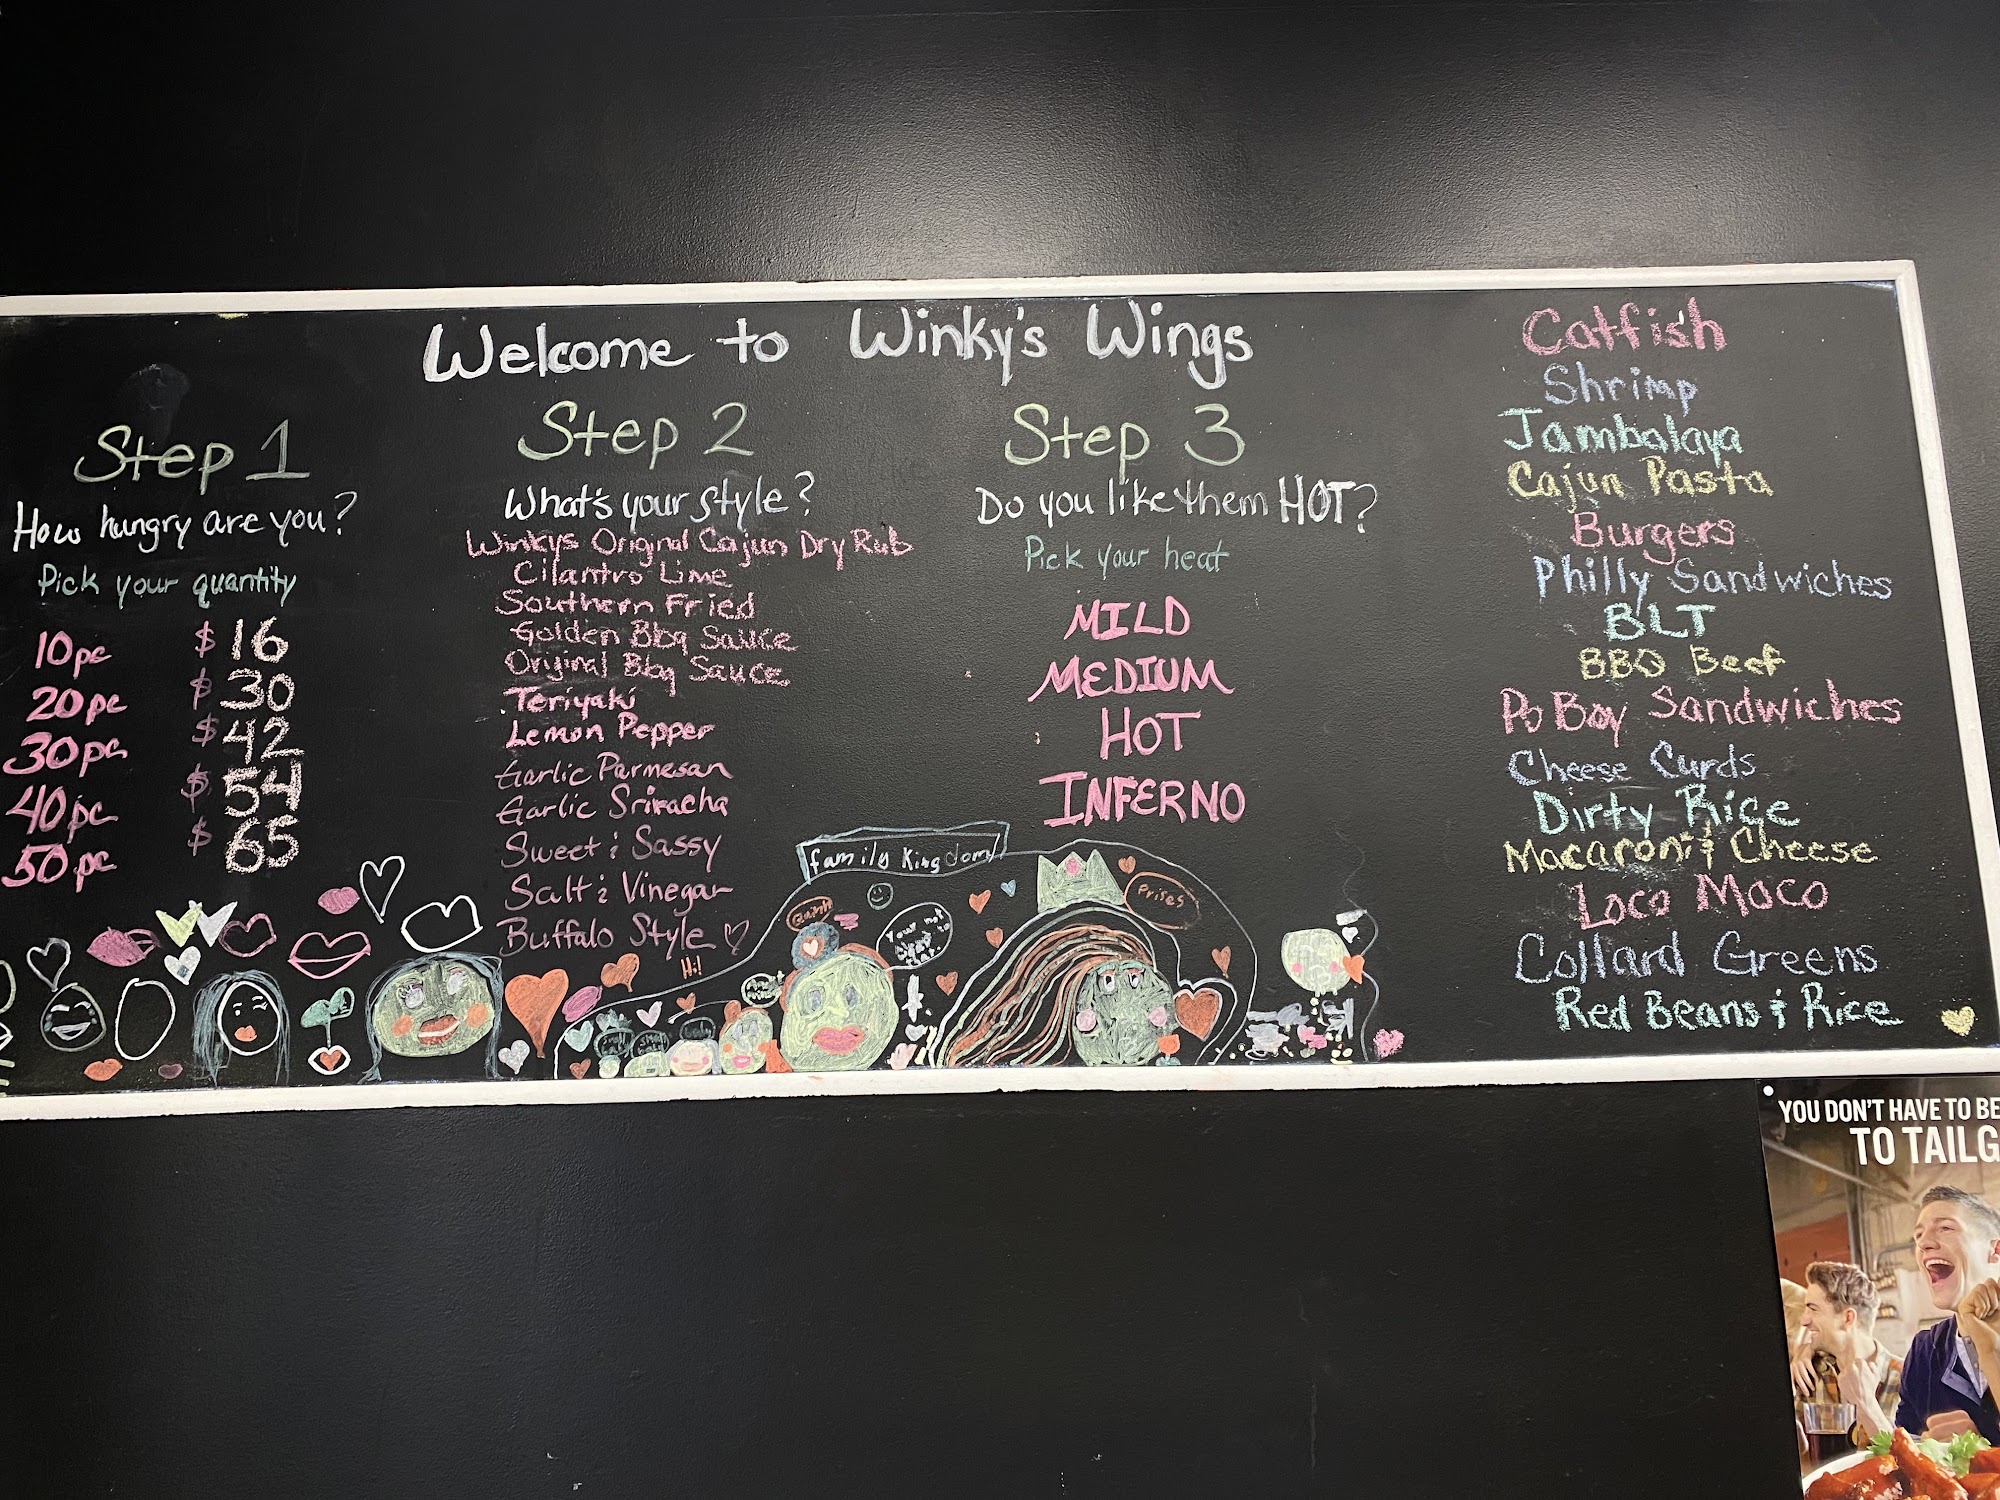 Welcome to Winky's Wings
Step 1
How hungry are you?
Pick your quantity
10pc $16
20pc $30
30pc $42
40pc $54
50pc $65
Step 2
What's your style?
Winkys Original Cajun Dry Rub
Cilantro Lime
Southern Fried
Golden Bbq Sauce
Original Bbq Sauce
Teriyaki
Lemon Pepper
Garlic Parmesan
Garlic Sriracha
Sweet & Sassy
Salt & Vinegar
Buffalo Style
Hi!
Step 3
Do you like them HOT?
Pick your heat
MILD
MEDIUM
HOT
INFERNO
family Kingdom
Catfish
Shrimp
Jambalaya
Cajun Pasta
Burgers
Philly Sandwiches
BLT
BBQ Beef
Po Boy Sandwiches
Cheese Curds
Dirty Rice
Macaroni & Cheese
Loco Moco
Collard Greens
Red Beans & Rice
YOU DON'T HAVE TO BE
TO TAILG